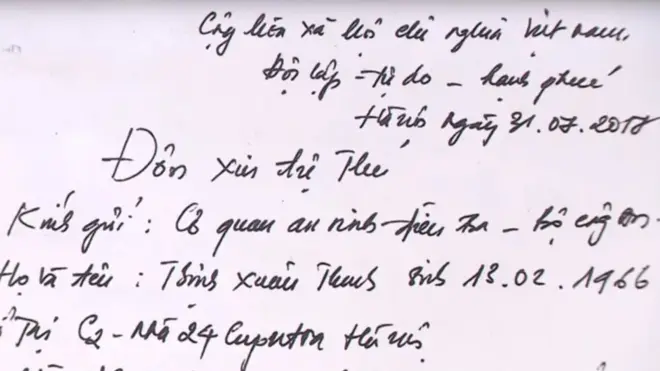 Cộng hòa xã hội chủ nghĩa Việt nam.
Độc lập - tự do - hạnh phúc
Hà nội ngày 31.07.2017
Đơn xin tự thú
Kính gửi : Cơ quan an ninh điều tra - bộ công an -
Họ và tên : Trịnh Xuân Thanh sinh 13.02.1966
C2 - nhà 24 Ciputra Hà nội